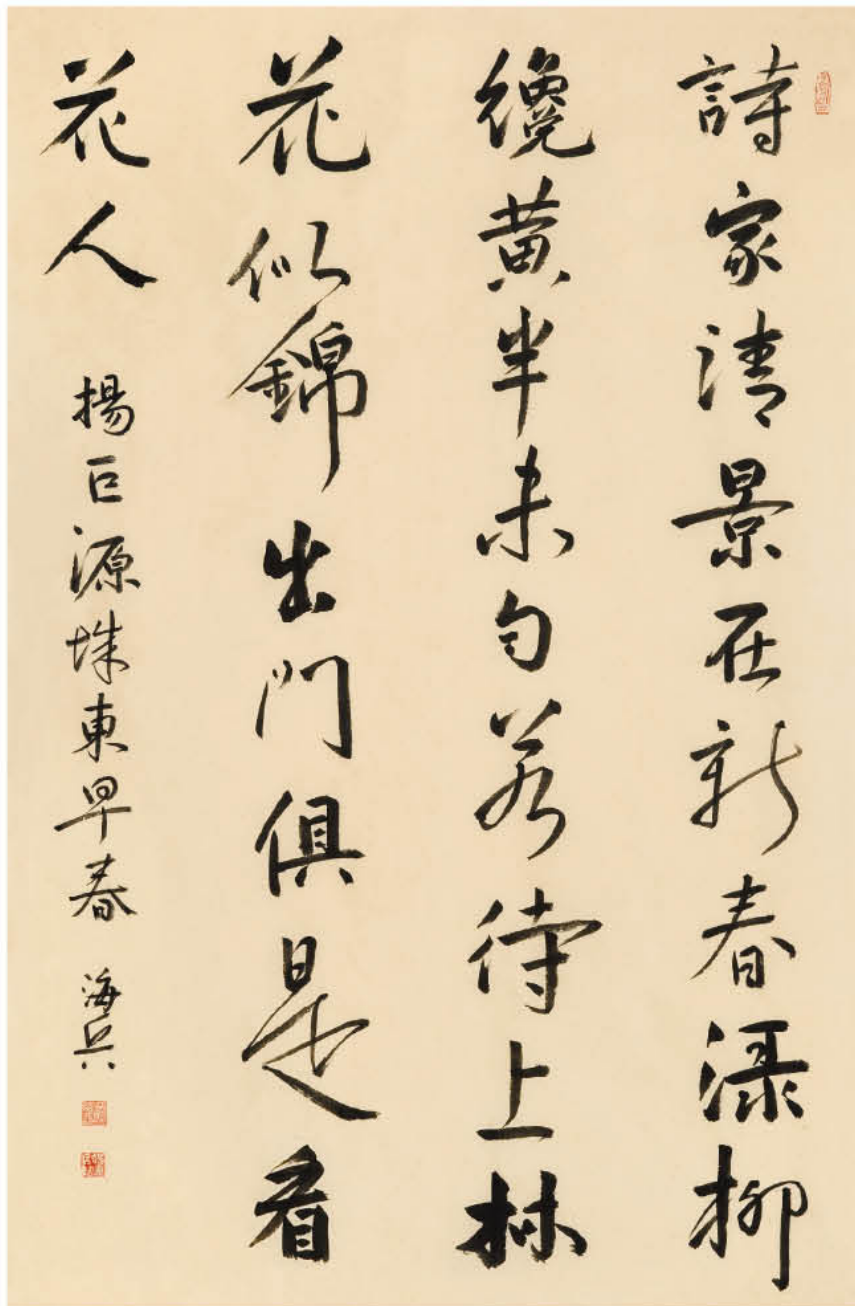 詩家清景在新春渌柳
纔黄半未勻若待上林
花似錦出門俱是看
花人
揚巨源城東早春 海兵